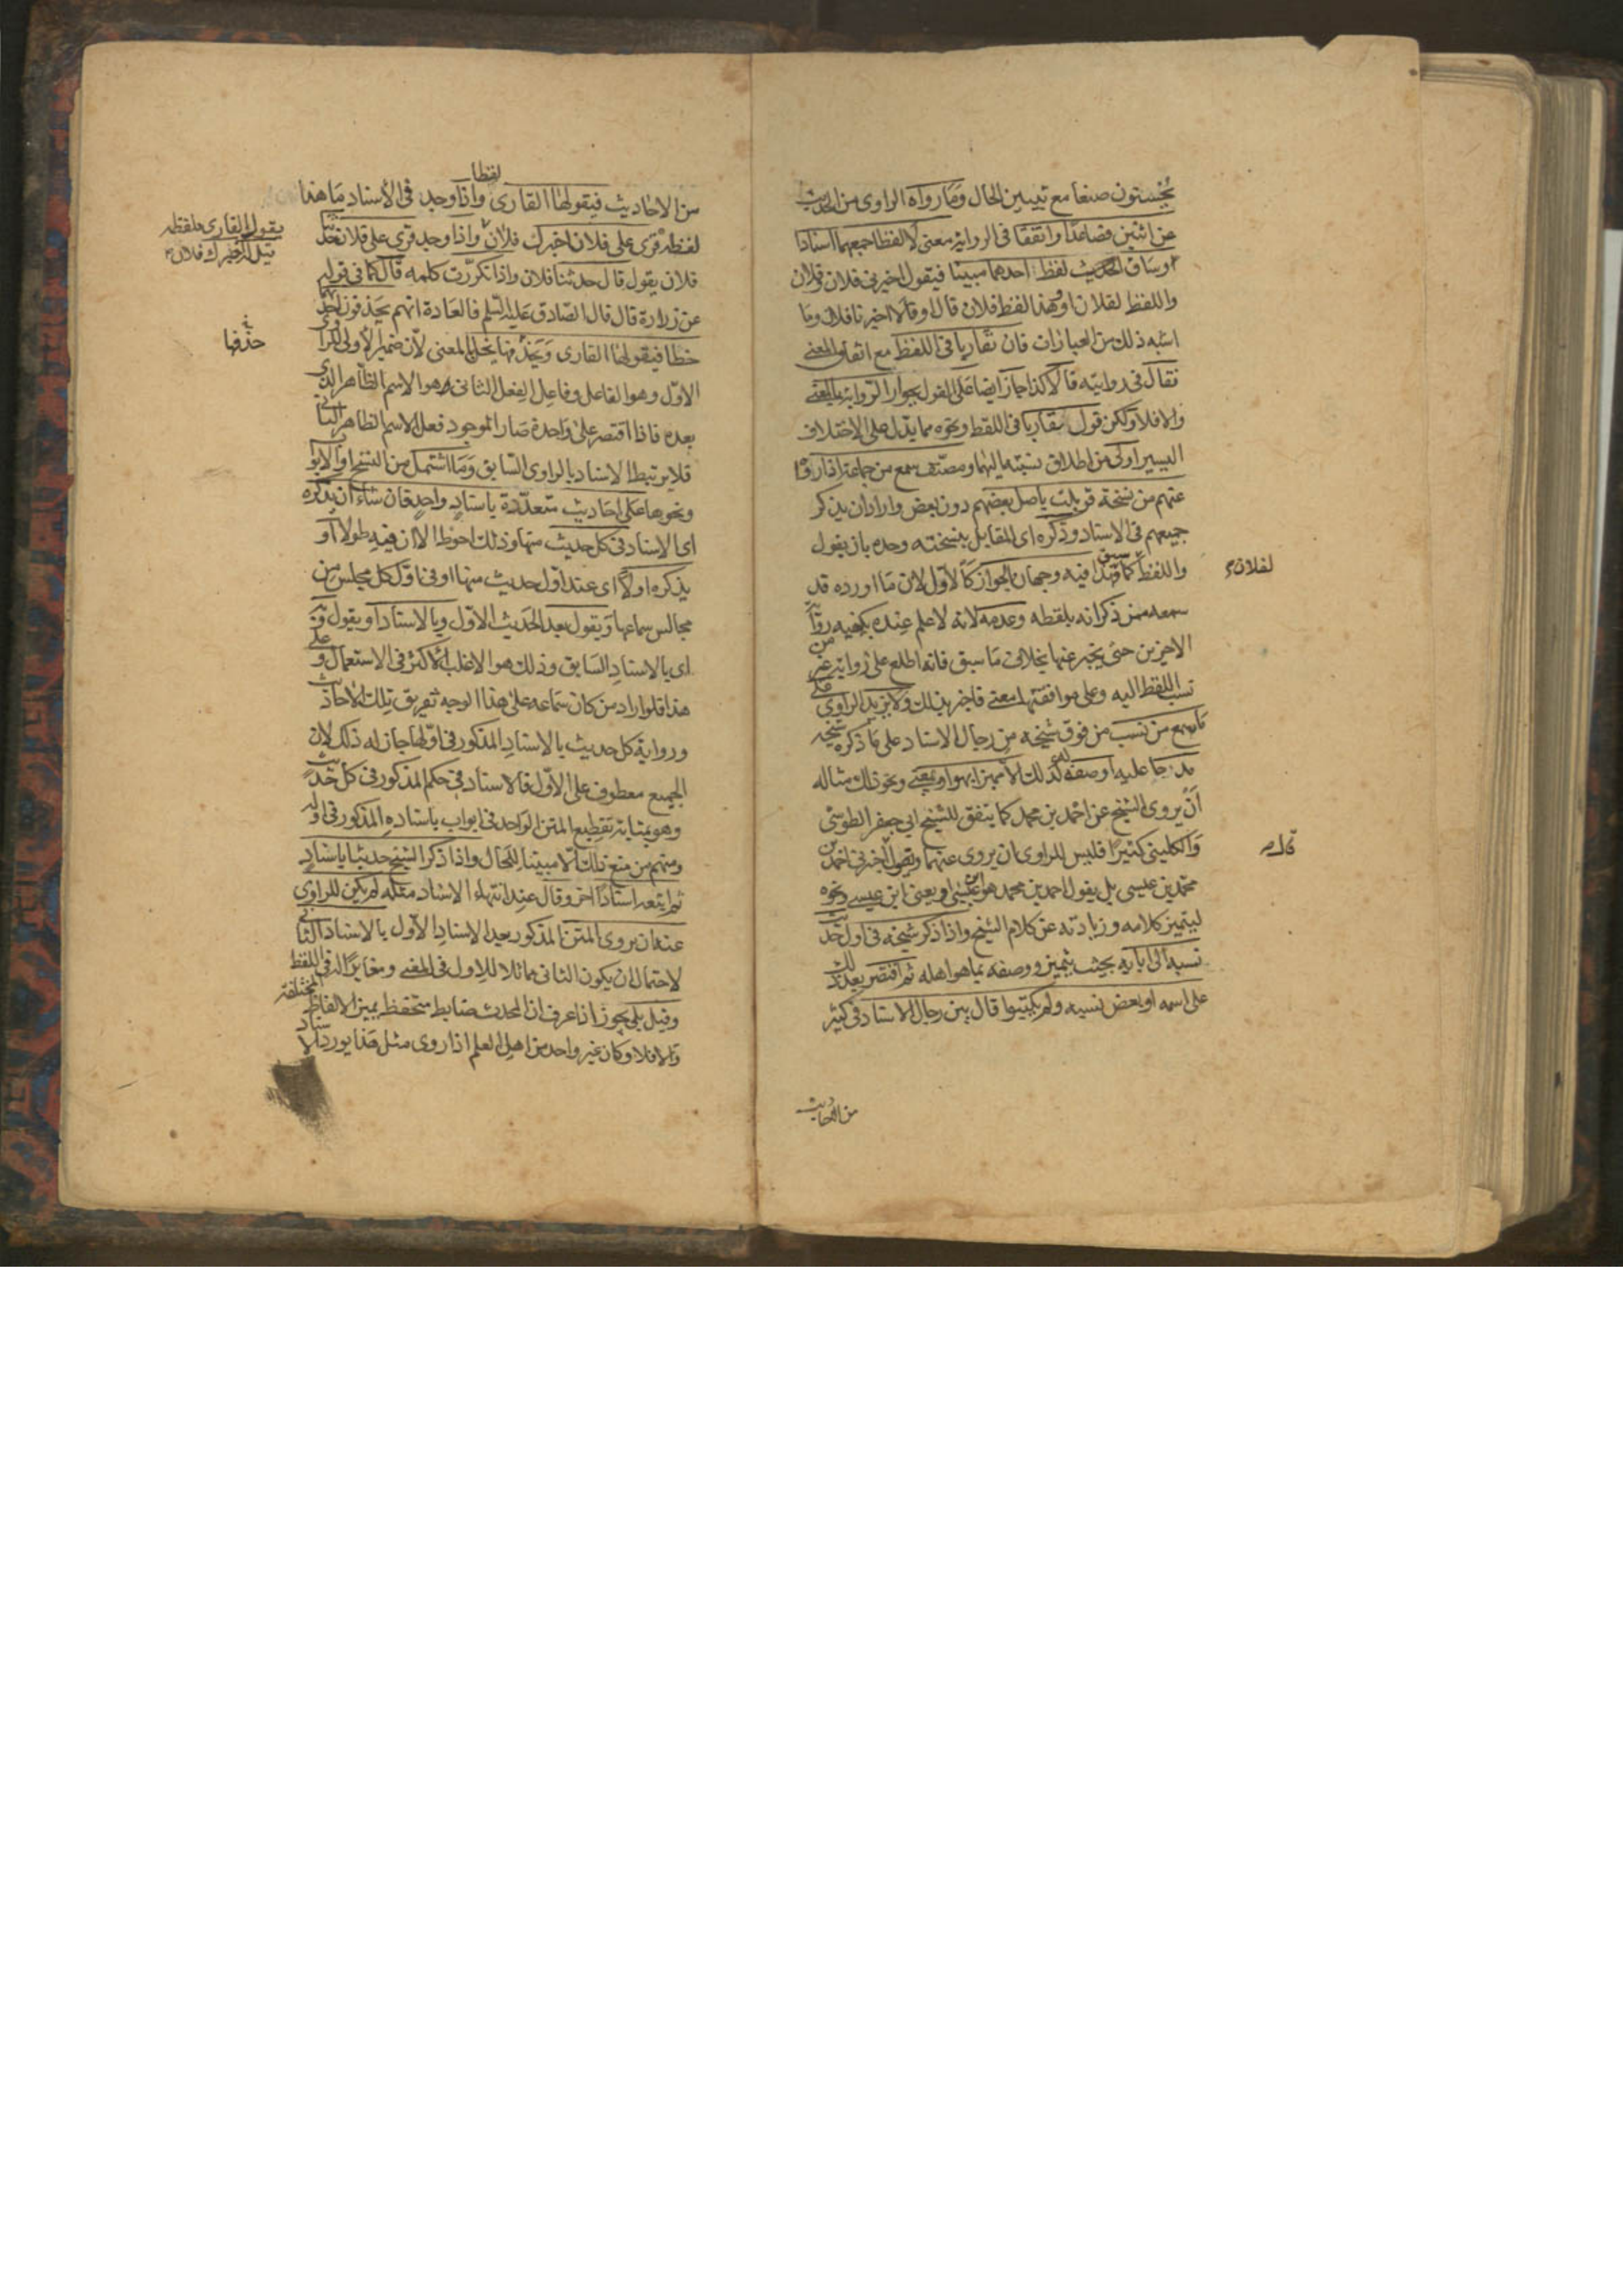 يحسنون صنعا مع تبيين الحال وما رواه الراوى من الحديث
عن اثنين فصاعدا واتفقا فى الرواية معنى لا لفظا جمعهما اسنادا
وساق الحديث لفظ احدهما مبينا فيقول اخبرنى فلان وفلان
واللفظ لفلان او وهذا لفظ فلان قال او قالا اخبرنا فلان وما
اشبه ذلك من العبارات فان تقاربا فى اللفظ مع اتفاق المعنى
فقال فى روايته قالا كذا جاز ايضا على القول بجواز الرواية بالمعنى
والا فلا ولكن قول تقاربا فى اللفظ ونحوه مما يدل على الاختلاف
اليسير اولى من اطلاق نسبته اليهما ومصنف سمع من جماعة اذا روى
عنهم من نسخة قوبلت باصل بعضهم دون بعض واراد ان يذكر
جميعهم فى الاسناد وذكره اى المقابل بنسخته وحده بان يقول
واللفظ لفلان كما سبق فهذا فيه وجهان الجواز كالاول لان ما اورده قد
سمعه ممن ذكر انه بلفظه وعدمه لانه لا علم عنده بكيفية رواية
الاخرين حتى يخبر عنها بخلاف ما سبق فانه اطلع على رواية غير من
نسب اللفظ اليه وعلى موافقتها معنى فاخبر بذلك ولا يزيد الراوى على
ما سمع من نسب من فوق شيخه من رجال الاسناد على ما ذكره شيخه
مدرجا عليه او صفة له كذلك الا مميزا بهو او يعنى ونحو ذلك مثاله
ان يروى الشيخ عن احمد بن محمد كما يتفق للشيخ ابى جعفر الطوسى
والكلينى كثيرا فليس للراوى ان يروى عنهما ويقول قال اخبرنى احمد بن
محمد بن عيسى بل يقول احمد بن محمد هو ابن عيسى او يعنى ابن عيسى ونحوه
ليتميز كلامه وزيادته عن كلام الشيخ واذا ذكر شيخه فى اول حديث
نسبه الى ابائه بحيث يتميز ووصفه بما هو اهله ثم اقتصر بعد ذلك
على اسمه او بعض نسبه ولم يكتبوا قال بين رجال الاسناد فى كثير
من الاحاديث
لفظا
من الاحاديث فيقولها القارى واذا وجد فى الاسناد ما هذا
لفظه قرى على فلان اخبرك فلان واذا وجد قرى على فلان حدثنا
يقول القارى بلفظه
قيل له اخبرك فلان
فلان يقول قال حدثنا فلان واذا تكررت كلمة قال كما فى قوله
عن زرارة قال قال الصادق عليه السلم فالعادة انهم يحذفون احدهما
خطا فيقولها القارى وحذفها يخل بالمعنى لان ضمير الاولى للراوى
حذفها
الاول وهو الفاعل وفاعل الفعل الثانى هو الاسم الظاهر الذى
بعده فاذا اقتصر على واحدة صار الموجود فعل الاسم الظاهر الثانى
فلا يرتبط الاسناد بالراوى السابق وما اشتمل من النسخ او الابواب
ونحوها على احاديث متعددة باسناد واحد فان شاء ان يذكره
اى الاسناد فى كل حديث منها وذلك احوط الا ان فيه طولا او
يذكره اولا اى عند اول حديث منها او فى اول كل مجلس من
مجالس سماعها ويقول بعد الحديث الاول وبالاسناد او يقول وبه
اى بالاسناد السابق وذلك هو الاغلب الاكثر فى الاستعمال وعلى
هذا فلو اراد من كان سماعه على هذا الوجه تفريق تلك الاحاديث
ورواية كل حديث بالاسناد المذكور فى اولها جاز له ذلك لان
الجميع معطوف على الاول فالاسناد فى حكم المذكور فى كل حديث
وهو بمثابة تقطيع المتن الواحد فى ابواب باسناده المذكور فى اوله
ومنهم من منع ذلك الا مبينا للحال واذا ذكر الشيخ حديثا باسناد
ثم اتبعه اسنادا اخر وقال عند انتهاء الاسناد مثله لم يكن للراوى
عنه ان يروى المتن المذكور بعد الاسناد الاول بالاسناد الثانى
لاحتمال ان يكون الثانى مماثلا للاول فى المعنى ومغايرا له فى اللفظ
وقيل بلى يجوز اذا عرف ان المحدث ضابط متحفظ يميز الالفاظ المختلفة
والا فلا وكان غير واحد من اهل العلم اذا روى مثل هذا يورد الاسناد